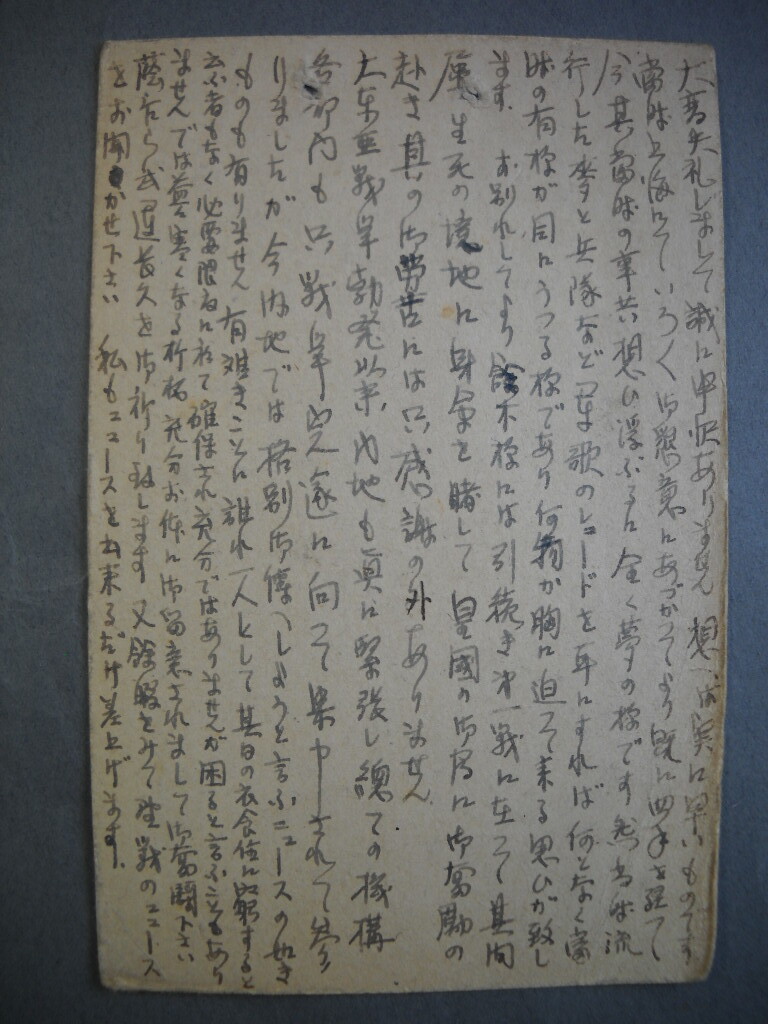 大変失礼しまして誠に申訳ありません 想へば実に早いものです
当時上海にていろ〱御懇意にあづかつてより既に四年を経て
今其当時の事共想ひ浮ぶるに全く夢の様です 当時流
行した麦と兵隊など軍歌のレコードを耳にすれば何となく当
時の有様が目にうつる様であり何物か胸に迫つて来る思ひが致し
ます。お別れしてより鈴木様には引続き第一戦に在つて其間
屡々生死の境地に身命を賭して皇国の御為に御奮励の
赴き其の御労苦には只感謝の外ありません
大東亜戦争勃発以来内地も真に緊張し総ての機構
各部内も只戦争完遂に向つて集中されて参
りましたが今内地では格別御伝へしようと言ふニュースの如き
ものも有りません 有難きことに誰れ一人として其日の衣食住に窮すると
云ふ者もなく必要限度に於て確保され充分ではありませんが困ると言ふこともあり
ませんでは益々寒くなる折柄充分お体に御留意されまして御奮闘下さい
蔭乍ら武運長久を御祈り致します 又余暇をみて聖戦のニュース
をお聞かせ下さい 私もニュースを出来るだけ差上げます。